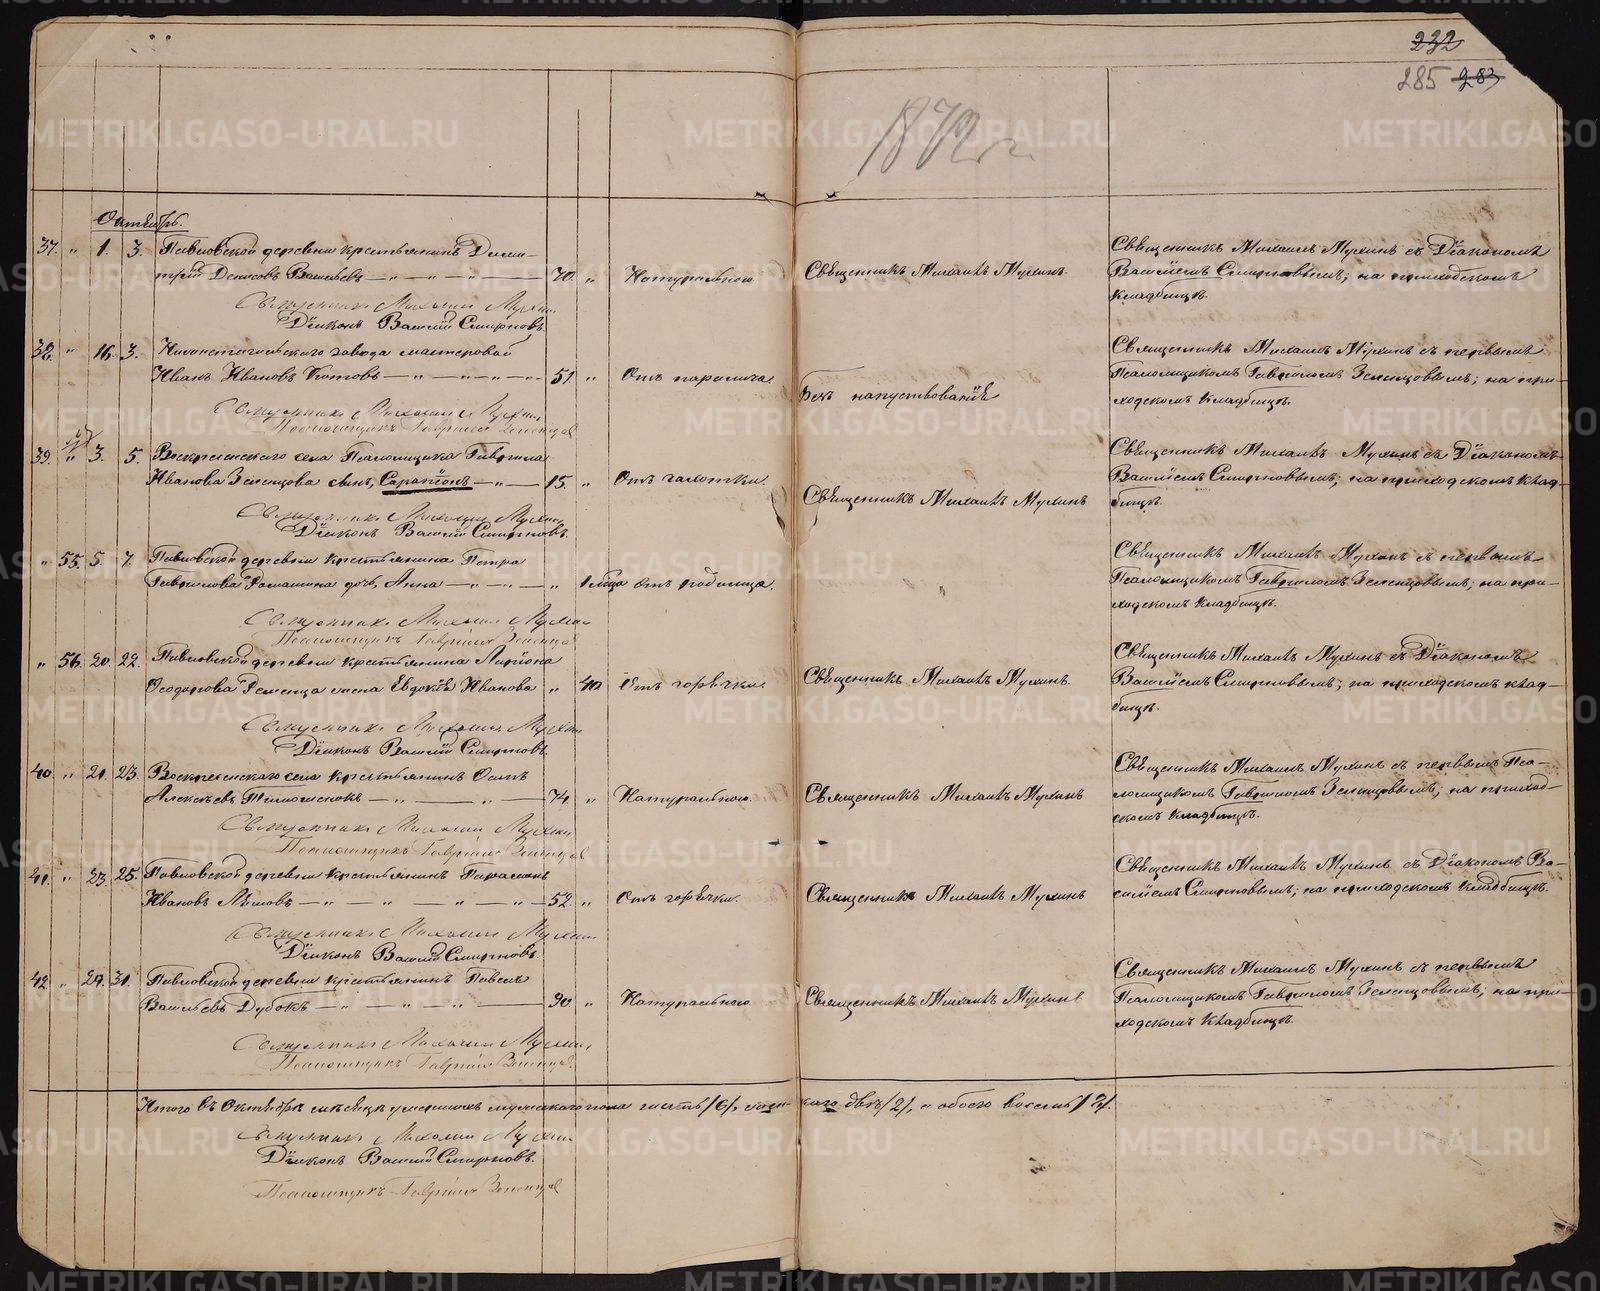 232
285 283
1872 г.
Октябрь.
37. " 1. 3. Павловской деревни крестьянинъ Дими-
трій Денисовъ Васильевъ — " — " — " — 70. " Натурально. Священникъ Михаилъ Мухинъ. Священникъ Михаилъ Мухинъ съ Діакономъ
Василіемъ Смирновымъ; на приходскомъ
кладбищѣ.
Священникъ Михаилъ Мухин
Діаконъ Василій Смирновъ.
38. " 16. 3. завода мастеровой
Иванъ Ивановъ — " — " — " — 51. " Отъ паралича. Безъ напутствованія Священникъ Михаилъ Мухинъ съ первымъ
Псаломщикомъ Гавріиломъ Зеленцовымъ; на при-
ходскомъ кладбищѣ.
Священникъ Михаилъ Мухин
Псаломщикъ Гавріилъ Зеленцов
39. " 3. 5. Воскресенскаго села Псаломщика Гавріила
Иванова Зеленцова сынъ, Сарапіонъ — " — 15. " Отъ чахотки. Священникъ Михаилъ Мухинъ Священникъ Михаилъ Мухинъ съ Діакономъ
Василіемъ Смирновымъ; на приходскомъ клад-
бищѣ.
Священникъ Михаилъ Мухин
Діаконъ Василій Смирновъ.
" 55. 5. 7. Павловской деревни крестьянина Петра
Гаврилова дочь, Анна — " — " — " Отъ родимца. " Священникъ Михаилъ Мухинъ съ первымъ
Псаломщикомъ Гавріиломъ Зеленцовымъ; на при-
ходскомъ кладбищѣ.
Священникъ Михаилъ Мухин
Псаломщикъ Гавріилъ Зеленцов
" 56. 20. 22. Павловской деревни крестьянина Ларіона
Ѳеодорова жена Евдокія Иванова " 40. Отъ горячки. Священникъ Михаилъ Мухинъ. Священникъ Михаилъ Мухинъ съ Діакономъ
Василіемъ Смирновымъ; на приходскомъ клад-
бищѣ.
Священникъ Михаилъ Мухин
Діаконъ Василій Смирновъ.
40. " 21. 23. Воскресенскаго села крестьянинъ Осипъ
Алексѣевъ — " — " — 74. " Натурально. Священникъ Михаилъ Мухинъ Священникъ Михаилъ Мухинъ съ первымъ Пса-
ломщикомъ Гавріиломъ Зеленцовымъ; на приход-
скомъ кладбищѣ.
Священникъ Михаилъ Мухин
Псаломщикъ Гавріилъ Зеленцов
41. " 23. 25. Павловской деревни крестьянинъ Парамонъ
Ивановъ — " — " — " — " — 52. " Отъ горячки. Священникъ Михаилъ Мухинъ Священникъ Михаилъ Мухинъ съ Діакономъ Ва-
силіемъ Смирновымъ; на приходскомъ кладбищѣ.
Священникъ Михаилъ Мухин
Діаконъ Василій Смирновъ.
42. " 29. 31. Павловской деревни крестьянинъ Павелъ
Васильевъ Дубокъ — " — " — " — 90. " Натурально. Священникъ Михаилъ Мухинъ Священникъ Михаилъ Мухинъ съ первымъ
Псаломщикомъ Гавріиломъ Зеленцовымъ; на при-
ходскомъ кладбищѣ.
Священникъ Михаилъ Мухин
Псаломщикъ Гавріилъ Зеленцов
Итого въ Октябрѣ мѣсяцѣ умершихъ мужескаго пола шесть /6/, женскаго двѣ /2/, а обоего восемь /8/.
Священникъ Михаилъ Мухин
Діаконъ Василій Смирновъ.
Псаломщикъ Гавріилъ Зеленцов
METRIKI.GASO-URAL.RU